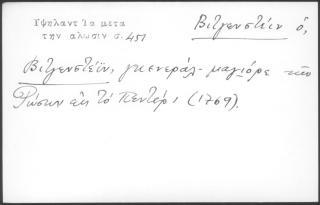 Υψηλαντ Τα μετα
την αλωσιν σ. 451
Βιτγενστέιν ὁ,
Βιτγενστέϊν, γκενεράλ-μαγιόρε τῶν
Ρώσων εἰς τό (1769).